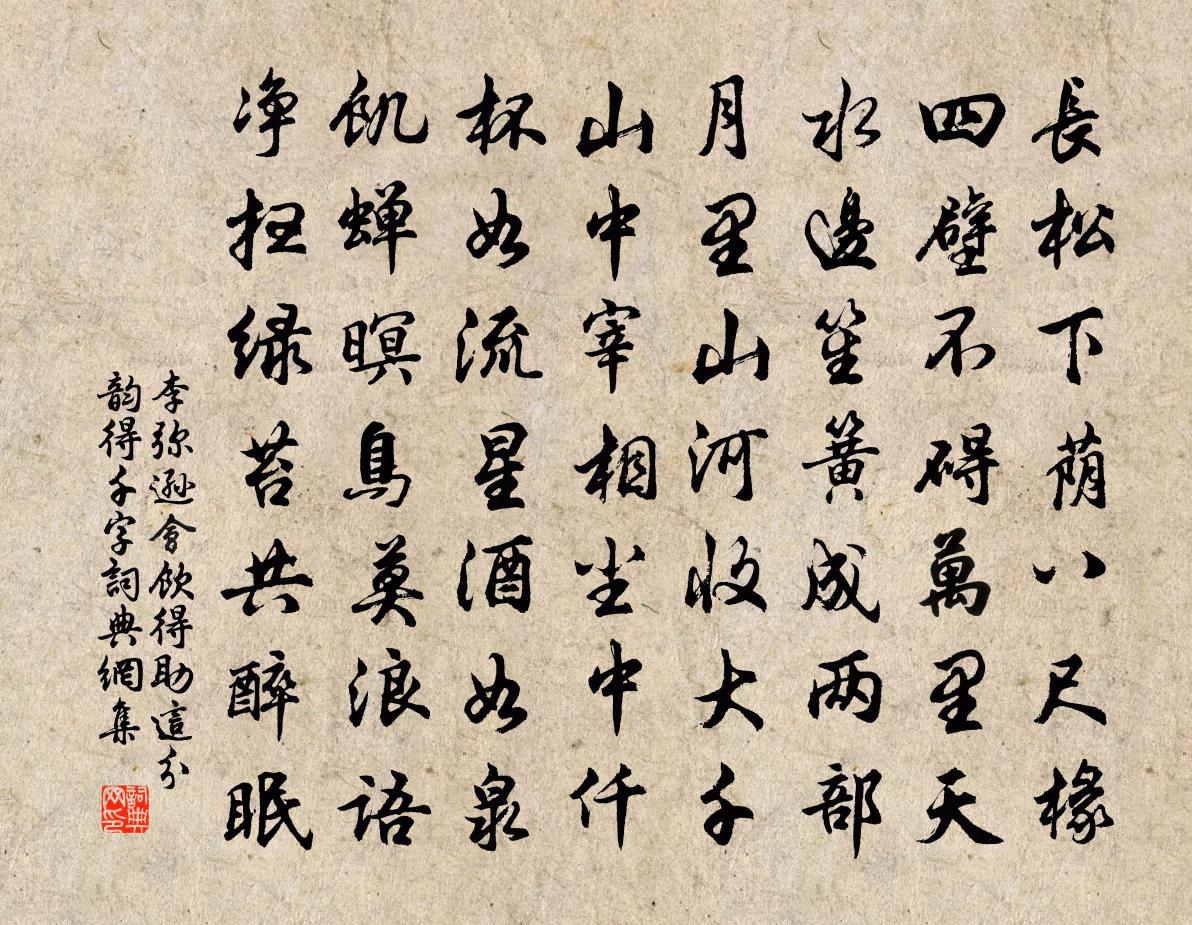 長松下荫八尺椽
四壁不碍萬里天
水邊笙簧成两部
月里山河收大千
山中宰相尘中仟
杯如流星酒如泉
飢蝉暝鳥莫浪語
净扫绿苔共醉眠
李弥遜會飲得助這分
韵得千字詞典網集
詞典
网印